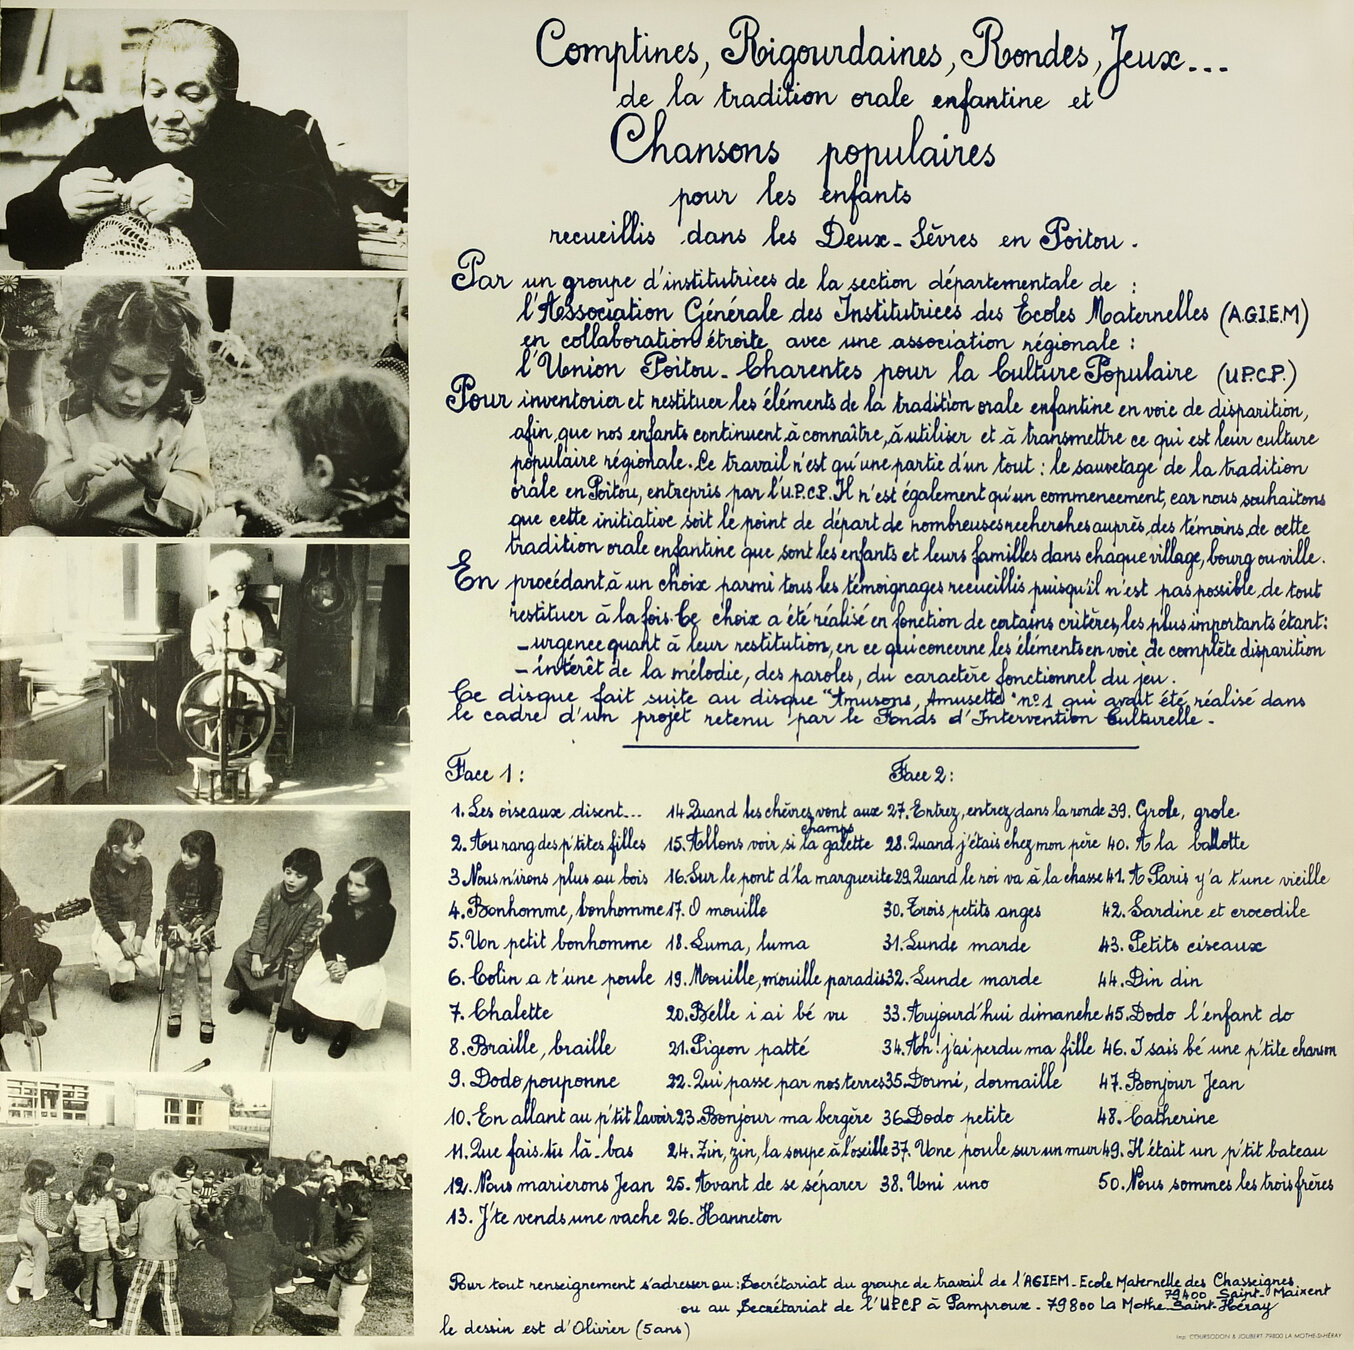 Comptines, Rigourdaines, Rondes, Jeux...
de la tradition orale enfantine et
Chansons populaires
pour les enfants
recueillis dans les Deux-Sèvres en Poitou.
Par un groupe d'institutrices de la section départementale de :
l'Association Générale des Institutrices des Ecoles Maternelles (A.G.I.E.M)
en collaboration étroite avec une association régionale :
l'Union Poitou-Charentes pour la Culture Populaire (U.P.C.P.)
Pour inventorier et restituer les éléments de la tradition orale enfantine en voie de disparition,
afin que nos enfants continuent à connaître, à utiliser et à transmettre ce qui est leur culture
populaire régionale. Ce travail n'est qu'une partie d'un tout : le sauvetage de la tradition
orale en Poitou, entrepris par l'U.P.C.P. Il n'est également qu'un commencement, car nous souhaitons
que cette initiative soit le point de départ de nombreuses recherches auprès des témoins de cette
tradition orale enfantine que sont les enfants et leurs familles dans chaque village, bourg ou ville.
En procédant à un choix parmi tous les témoignages recueillis puisqu'il n'est pas possible de tout
restituer à la fois. Ce choix a été réalisé en fonction de certains critères, les plus importants étant:
- urgence quant à leur restitution, en ce qui concerne les éléments en voie de complète disparition
- intérêt de la mélodie, des paroles, du caractère fonctionnel du jeu.
Ce disque fait suite au disque "Amusons, Amusette" n°1 qui avait été réalisé dans
le cadre d'un projet retenu par le Fonds d'Intervention Culturelle.
Face 1 :
1. Les oiseaux disent...
2. Au rang des p'tites filles
3 Nous n'irons plus au bois
4. Bonhomme, bonhomme
5. Un petit bonhomme
6. Colin a t'une poule
7. Chalette
8. Braille, braille
9. Dodo pouponne
10. En allant au p'tit lavoir
11. Que fais-tu là-bas
12. Nous marierons Jean
13. J'te vends une vache
14 Quand les chèvres vont aux champs
15. Allons voir si la galette
16. Sur le pont d'la marguerite
17. O mouille
18. Luma, luma
19. Mouille, mouille paradis
20. Belle i ai bé vu
21. Pigeon patté
22. Qui passe par nos terres
23. Bonjour ma bergère
24. Zin, zin, la soupe à l'oseille
25. Avant de se séparer
26. Hanneton
Face 2 :
27. Entrez, entrez dans la ronde
28. Quand j'étais chez mon père
29. Quand le roi va à la chasse
30. Trois petits anges
31. Lunde marde
32. Lunde marde
33. Aujourd'hui dimanche
34. Ah! j'ai perdu ma fille
35. Dormi, dormaille
36 Dodo petite
37. Une poule sur un mur
38. Uni uno
39. Grole, grole
40. A la ballotte
41. A Paris y'a t'une vieille
42. Sardine et crocodile
43. Petits ciseaux
44. Din din
45. Dodo l'enfant do
46. I sais bé une p'tite chanson
47. Bonjour Jean
48. Catherine
49. Il était un p'tit bateau
50. Nous sommes les trois frères
Pour tout renseignement s'adresser au : Secrétariat du groupe de travail de l'AGIEM - Ecole Maternelle des Chasseignes
79400 Saint-Maixent
ou au Secrétariat de l'UPCP à Pamproux - 79800 La Mothe-Saint-Héray
le dessin est d'Olivier (5 ans)
Imp. COURSODON & JOUBERT-79800 LA MOTHE-St-HÉRAY